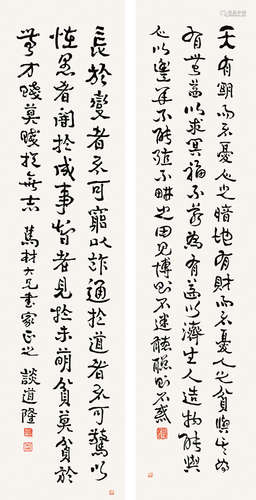 天有明而不憂人之暗地有財而不憂人之貧與其為
無益以求冥福不若為有益以濟生人造物能與
人以逢年不能殖不畊之田見博則不迷聽聰則不惑
長於變者不可窮以詐通於道者不可驚以
怪愚者闇於成事智者見於未萌貧莫貧於
無才賤莫賤於無志 材大兄書家正之 談道隆